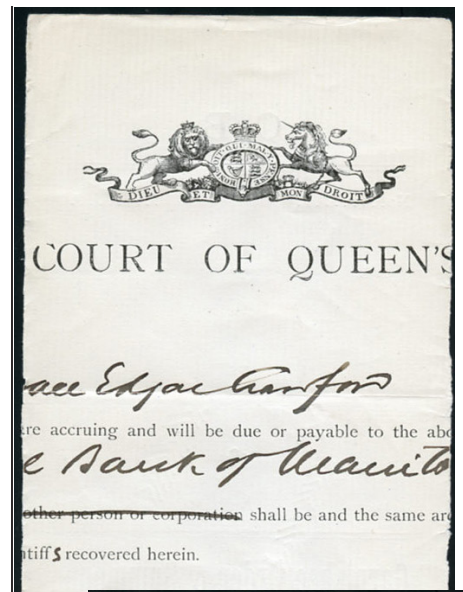 HONI SOIT QUI MAL Y PENSE
DIEU ET MON DROIT
COURT OF QUEEN'S
ace Edgar Crawford
are accruing and will be due or payable to the abo
e Bank of Manito
other person or corporation shall be and the same are
ntiffs recovered herein.